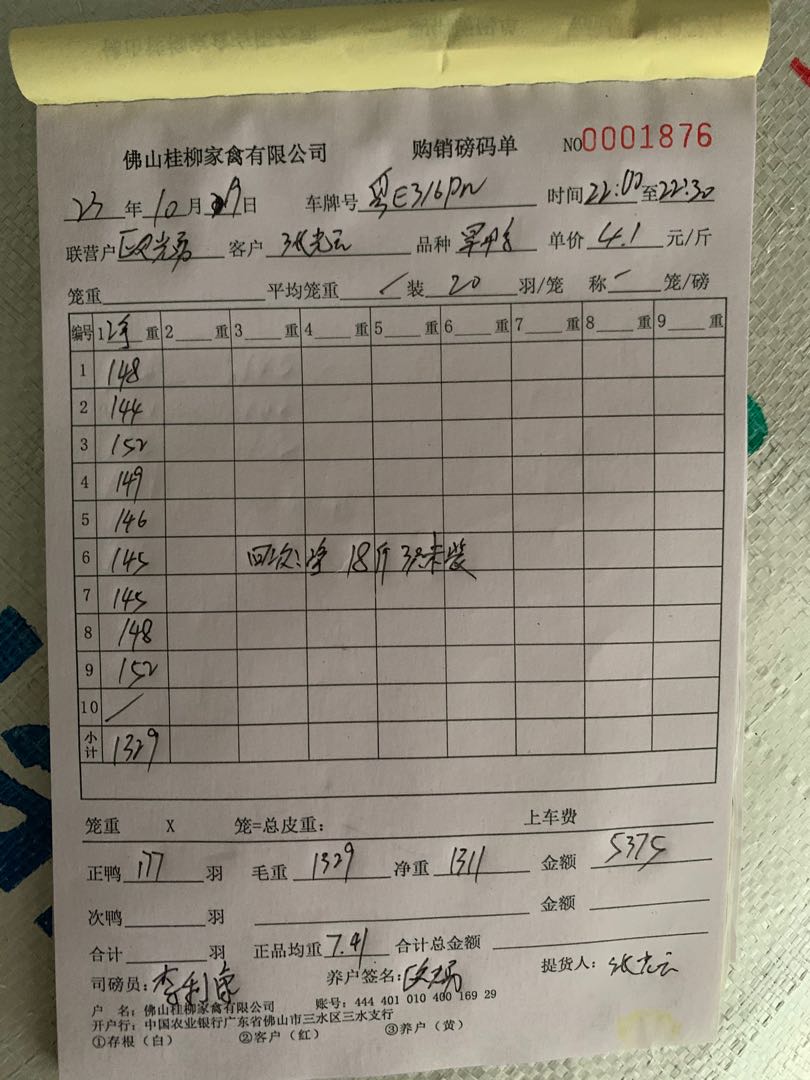 佛山桂柳家禽有限公司 购销磅码单 NO0001876
23年10月29日 车牌号 粤E316PN 时间22:00至22:30
联营户 客户 张光云 品种 单价 4.1 元/斤
笼重 平均笼重 / 装 20 羽/笼 称 笼/磅
编号 1 重 2 重 3 重 4 重 5 重 6 重 7 重 8 重 9 重
1 148
2 144
3 152
4 149
5 146
6 145 18斤 3只未装
7 145
8 148
9 152
10 /
小计 1329
笼重 X 笼=总皮重: 上车费
正鸭 177 羽 毛重 1329 净重 1311 金额 5375
次鸭 羽 金额
合计 羽 正品均重 7.41 合计总金额
司磅员: 养户签名: 提货人: 张光云
户 名: 佛山桂柳家禽有限公司 账号: 444 401 010 400 169 29
开户行: 中国农业银行广东省佛山市三水区三水支行
①存根（白） ②客户（红） ③养户（黄）